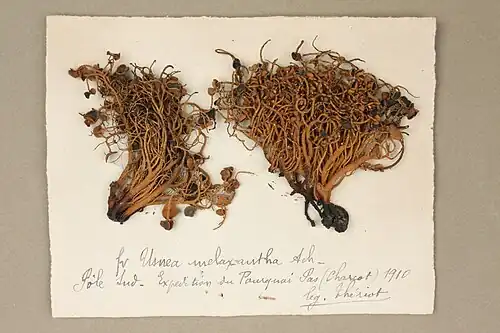 fr Usnea melaxantha Ach.
Pôle Sud - Expedition du Pourquoi Pas (Charcot) 1910
leg. Thériot